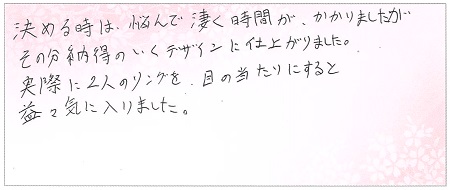 決める時は、悩んで凄く時間が、かかりましたが
その分納得のいくデザインに仕上がりました。
実際に2人のリングを、目の当たりにすると
益々気に入りました。